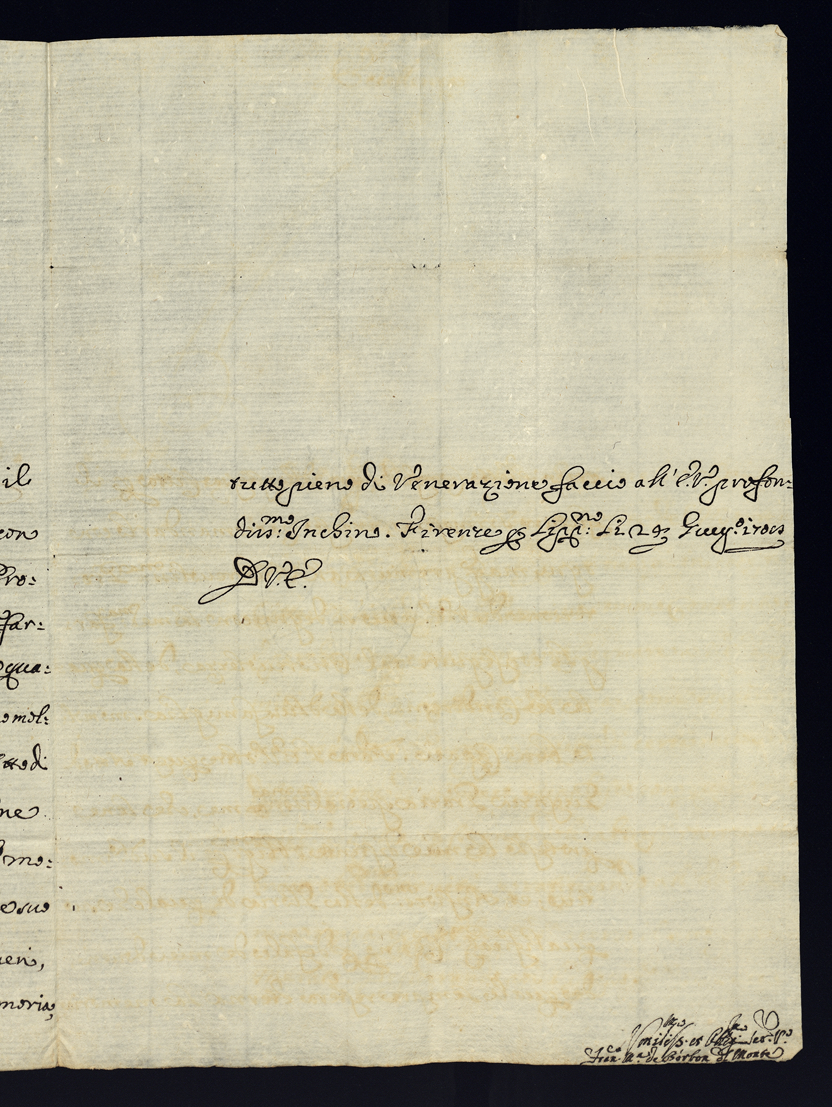 il
con
Pro:
Far:
qua:
mol:
tto di
ne
mo:
e suo
ien,
moria,
tutto pieno di Venerazione faccio all' E.V. profon:
diss:mo Inchino. Firenze
Li 29 Giug.o
D. V. E.
Umiliss.mo et
Fran.co M.a de Borbon del Monte